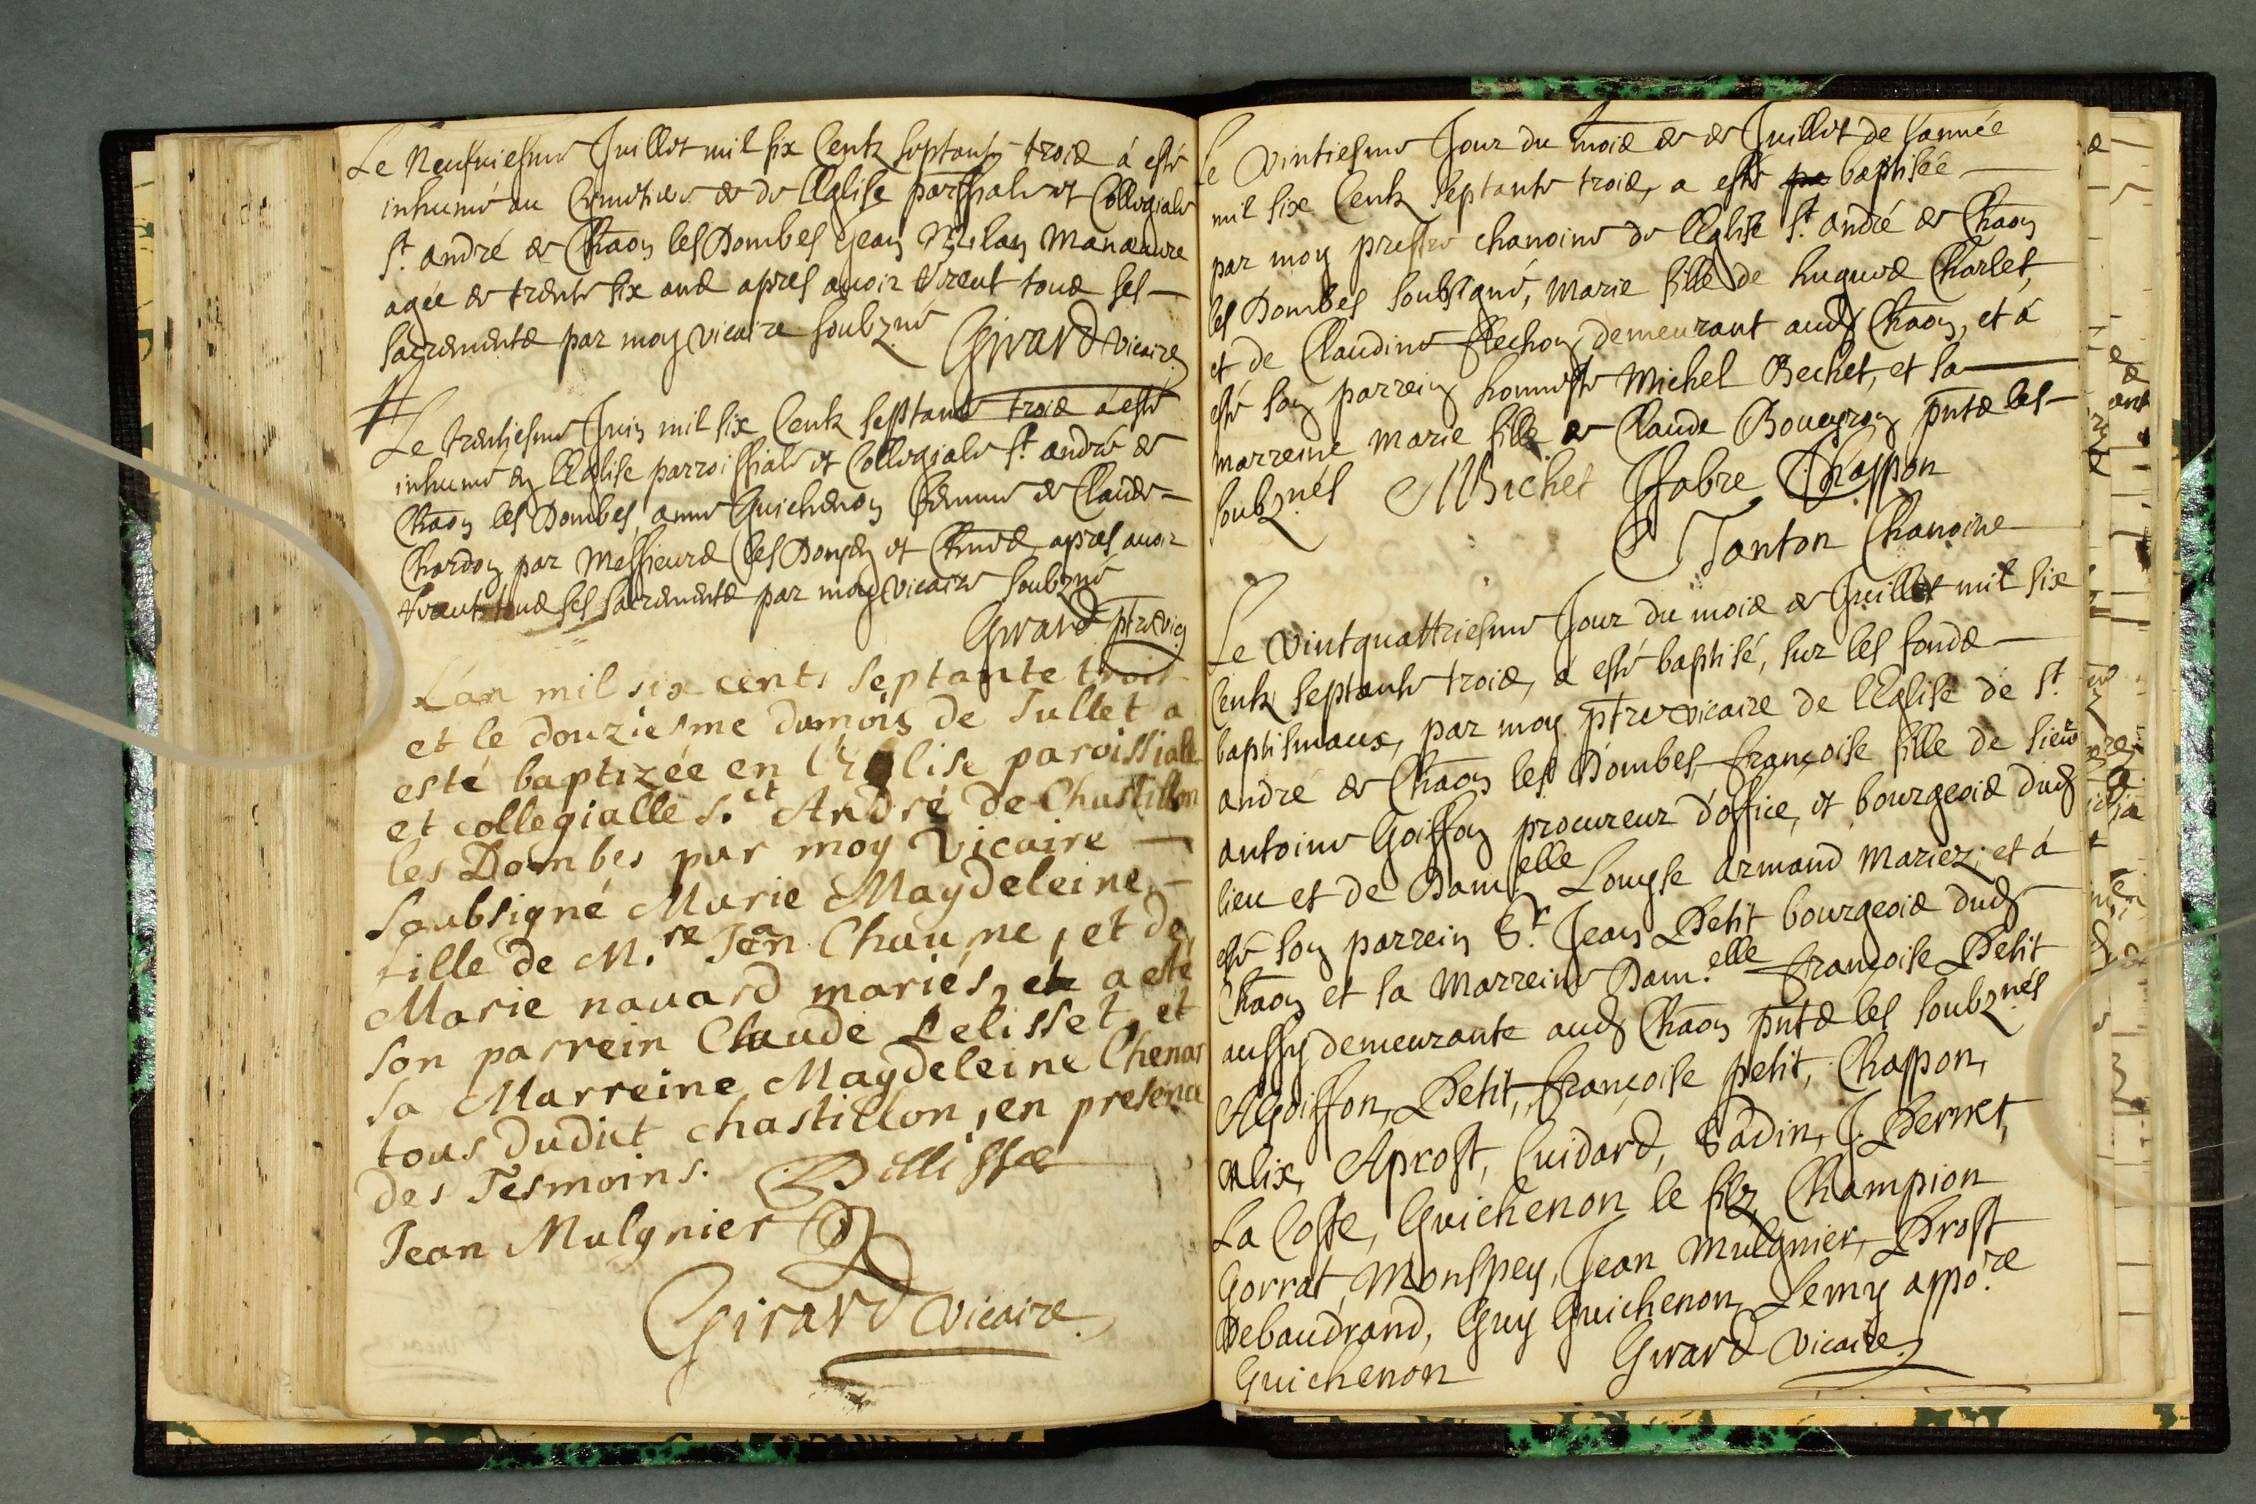 Le Neufuiesme Juillet mil six Centz septante trois á esté
inhumé au Cimetiere de de l'Eglise par̅ssiale et Collegiale
St. andré de Chaōn les Dombes Jean Manæuure
agée de trente six ans apres auoir receut tous ses
sacrements par moy vicaire soubzné Girard vicaire
Le trentiesme Juin mil six Centz septante trois á esté
inhumé en l'Eglise parroissiale et Collegiale St. andré de
Chaōn les Dombes, anne Guichenon femme de Claude
Chardon par Messieurs les Doyen et apres auoir
receut tous ses sacrements par moy vicaire soubzné
Girard ptre vic
L'an mil six cents septante trois
et le douziesme du mois de Jullet a
esté baptizée en l'Eglise paroissialle
et collegialle S.ct André de Chastillon
les Dombes par moy Vicaire
soubsigné Marie Magdeleine
fille de M.re Jean Chaume, et de
Marie nauard mariés, et a esté
son parrein Claude Pelisset, et
sa Marreine Magdeleine Chenar
tous dudict chastillon, en presence
des Tesmoins. Pellisset
Jean Mulgnier
Girard vicaire
Le vintiesme Jour du mois de de Juillet de l'année
mil six Centz septante trois, a esté pa baptisée
par moy prestre chanoine de l'Eglise St. andré de Chaōn
les Dombes soubsigné, Marie fille de hugues Charles,
et de Claudine Flechon demeurant aud Chaōn, et á
esté son parrein honneste Michel Bechet, et sa
marreine Marie fille de Claude Boueyron pn̅ts les
soubznés MBichet ffabre Chappon
Tanton Chanoine
Le vintquattriesme Jour du mois de Juillet mil six
Centz septante trois, á esté baptisé, sur les fonds
baptismaux, par moy ptre vicaire de l'Eglise de St.
andré de Chaōn les Dombes, françoise fille de sieur
antoine Goiffon procureur d'office, et bourgeois dud
lieu et de Damelle Louyse armand Mariez; et á
esté son parrein Sr. Jean Petit bourgeois dud
Chaōn et sa Marreine Dam.elle françoise Petit
aussy demeurante aud Chaōn pn̅ts les soubznés
AGoiffon, Petit, françoise petit, Chappon,
Alix, Aprost, Cuidard, Sadin, J. Pernet,
La Coste, Guichenon le filz, Champion
Gorrat, Monspey, Jean Mulgnier, Prost
Debaudrand, Guy Guichenon, Lemy appo.re
Guichenon Girard vicaire